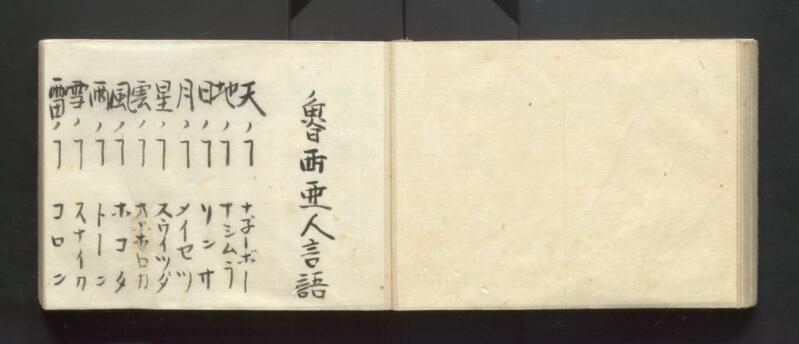 魯西亜人言語
天ノヿ ナヂーボー
地ノヿ ナシムラ
日ノヿ ソンサ
月ノヿ メイセツ
星ノヿ スウイツダ
雲ノヿ オボロカ
風ノヿ ホコタ
雨ノヿ トーン
雪ノヿ スナイク
雷ノヿ コロン